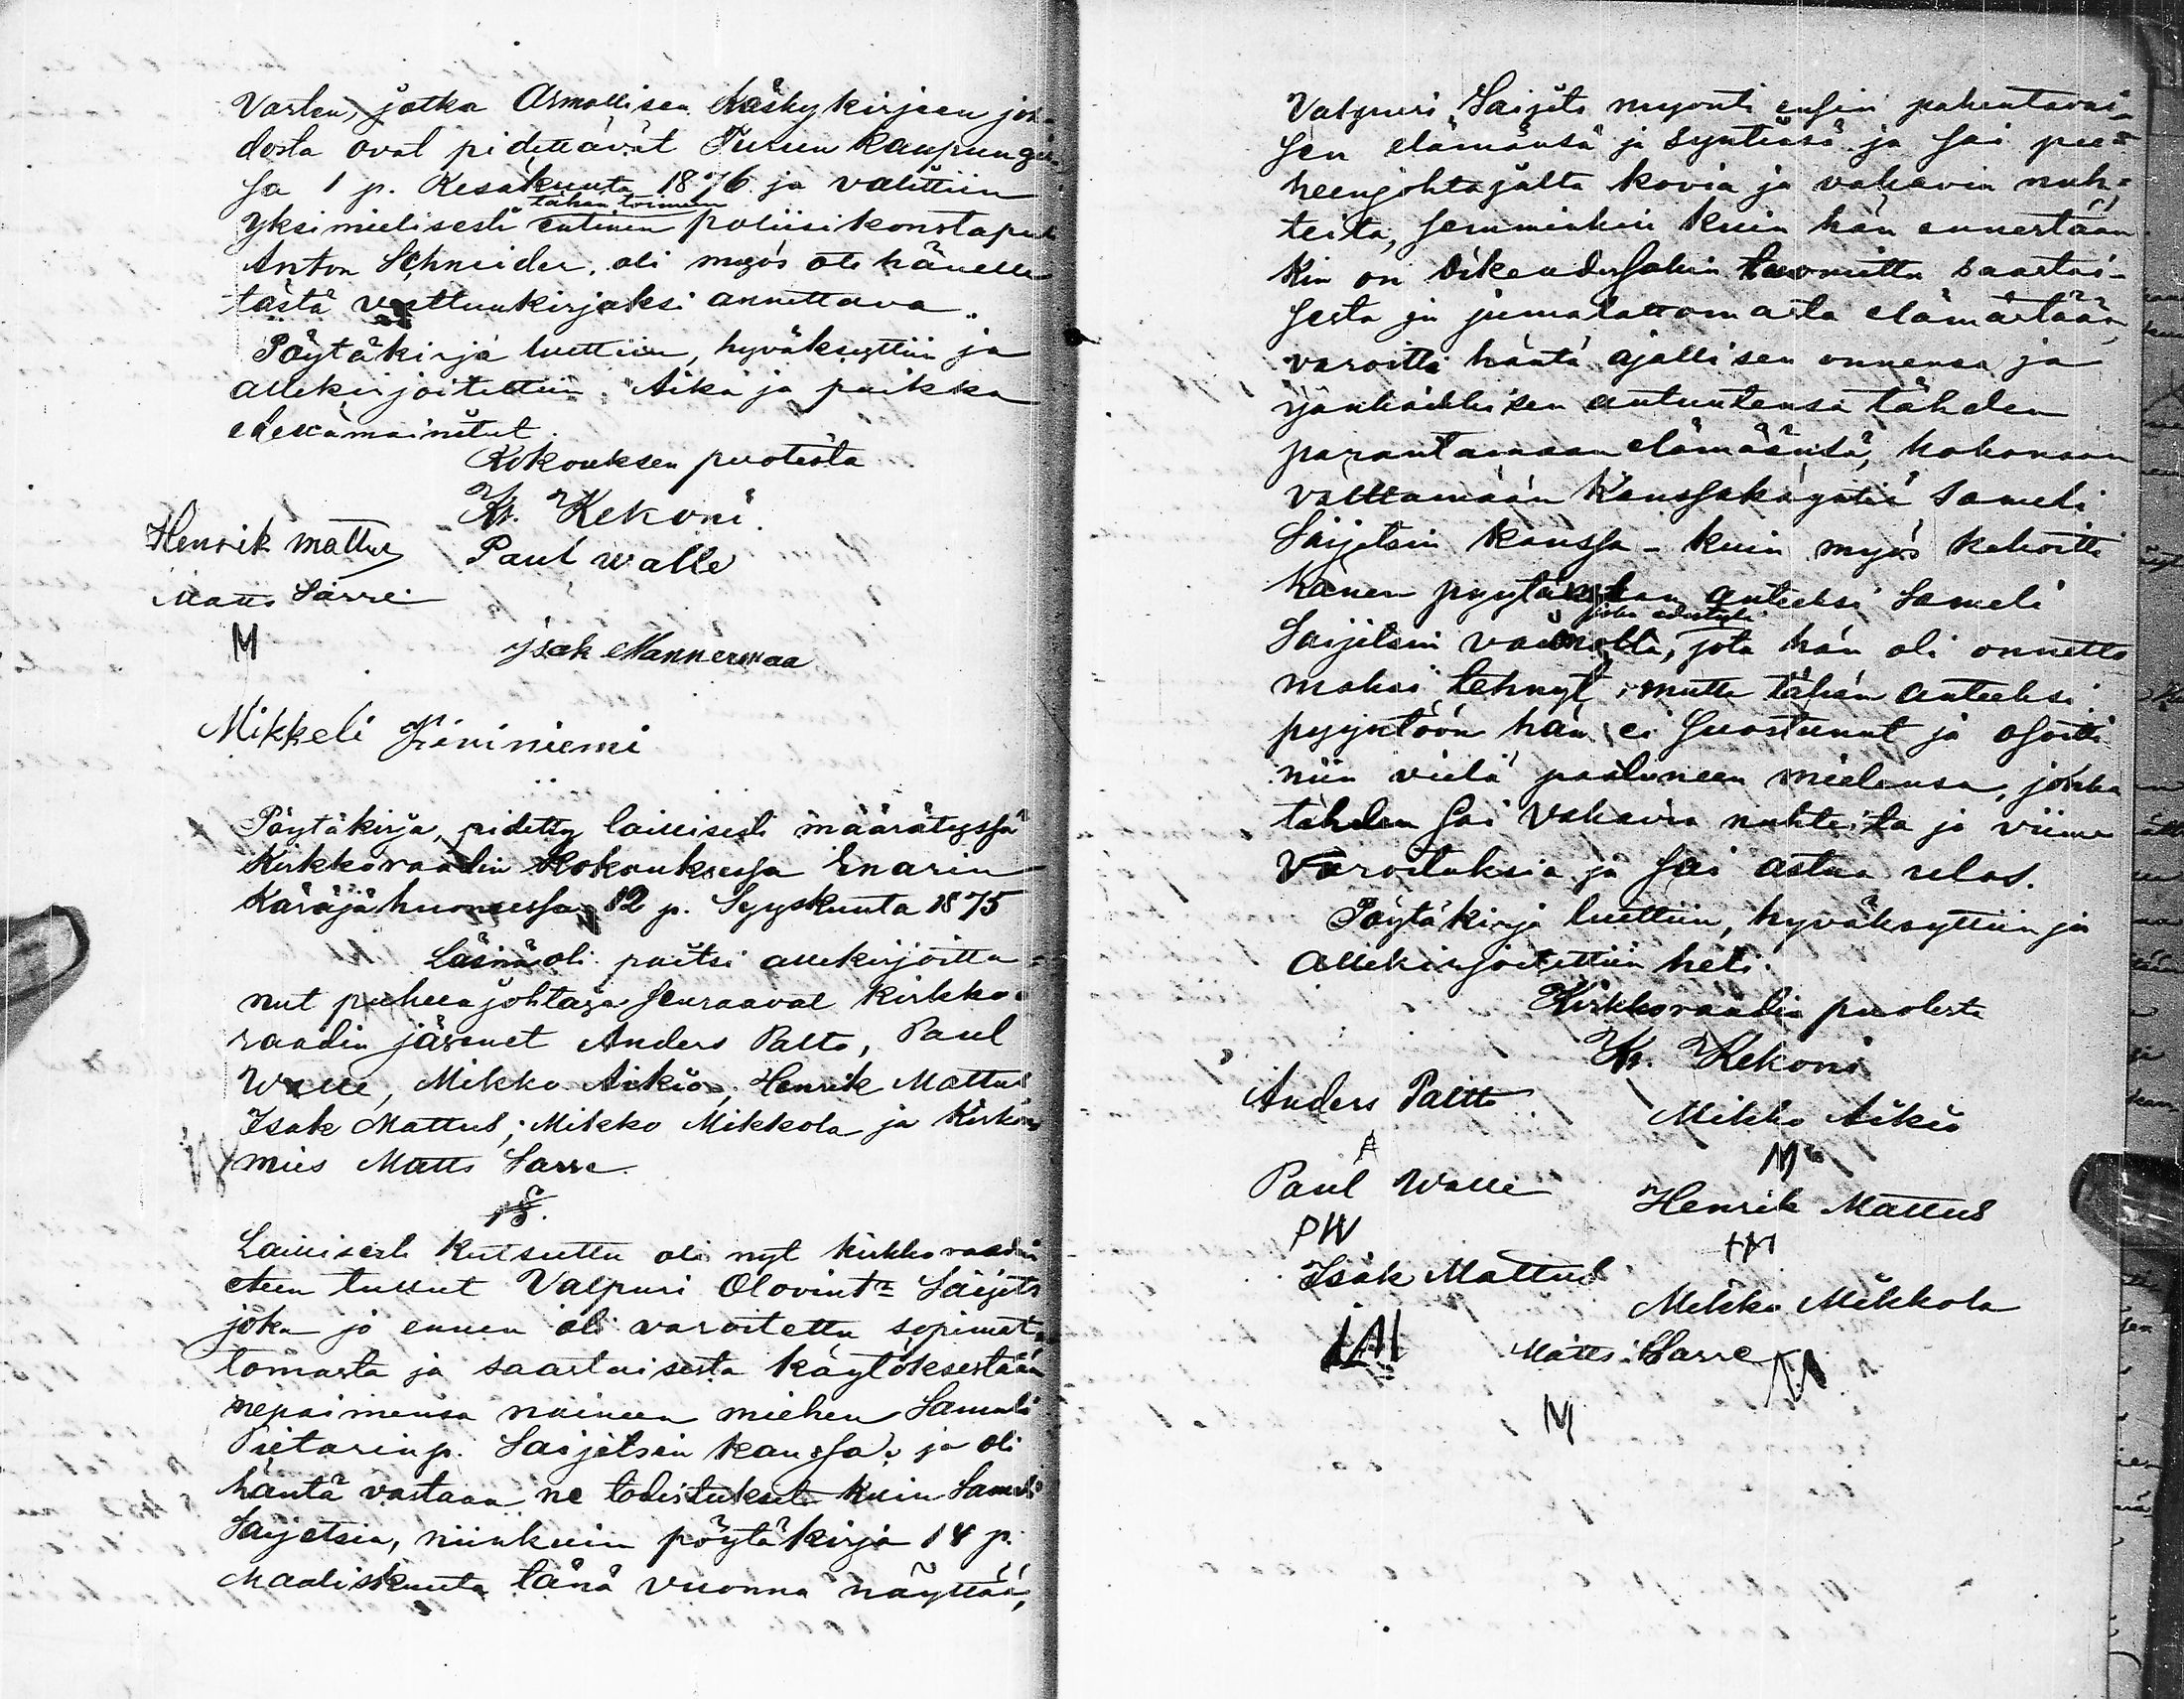 Varten, jotka Armollisen Käskykirjeen joh-
dosta ovat pidettävät Turun Kaupungis-
sa 1 p. Kesäkuuta 1876 ja valittiin
tähän toimeen
yksimielisesti entinen poliisikonstapeli
Anton Schneider, oli myös ote hänelle
tästä valtuuskirjaksi annettava.
Pöytäkirja luettiin, hyväksyttiin ja
allekirjoitettiin. Aika ja paikka
edellämainitut.
Kokouksen puolesta
Kr. Kekoni.
Henrik mattus Paul walle
Matts Sarre
M Isak Mannermaa
Mikkeli Kiviniemi
Pöytäkirja, pidetty laillisesti määrätyssä
Kirkkoraadin Kokouksessa Enarin
Käräjähuoneessa 12 p. Syyskuuta 1875
Läsnä oli paitsi allekirjoitta-
nut puheenjohtaja seuraavat Kirkko-
raadin jäsenet Anders Paltto, Paul
Walle, Mikko Aikio, Henrik Mattus
Isak Mattus, Mikko Mikkola ja Kirkon
mies Matts Sarre.
1 §.
Laillisesti Kutsuttu oli nyt kirkkoraadin
eteen tullut Valpuri Olovint:r Saijets
joka jo ennen oli varoitettu sopimat-
tomasta ja saastaisesta käytöksestään
nepaimensa naineen miehen Sameli
Pietarinp. Saijetsin kanssa, ja oli
häntä vastaan ne todistukset kuin Sameli
Saijetsia, niinkuin pöytäkirja 14 p.
Maaliskuuta tänä vuonna näyttää,
Valpuri Saijets myönti ensin pahentavai-
sen elämänsä ja syntinsä ja sai pu-
heenjohtajalta kovia ja vakavia nuh-
teita, semminkin kuin hän ennestään-
kin on oikeudessakin tuomittu saastai-
sesta ja jumalattomasta elämästään,
varoitti häntä ajallisen onnensa ja
ijankaikkisen autuutensa tähden
parantamaan elämäänsä, kokonaan
välttamään Kanssakäyntiä Sameli
Saijetsin kanssa - kuin myös kehoitti
hänen pyytämään anteeksi Sameli
Saijetsin vaimolta, jota hän oli onnetto
maksi tehnyt, mutta tähän anteeksi
pyyntöön hän ei suostunut ja osoitti
niin vielä paatuneen mielensa, jonka
tähden sai Vakavia nuhteita ja viime
Varoituksia ja sai astua ulos.
Pöytäkirja luettiin, hyväksyttiin ja
allekirjoitettiin heti.
Kirkkoraadin puolesta
Kr. Kekoni
Anders Paltto Mikko Aikio
A M
Paul Walle Henrik Mattus
PW HM
Isak Mattus Mikko Mikkola
IM Matts Sarre MM
M